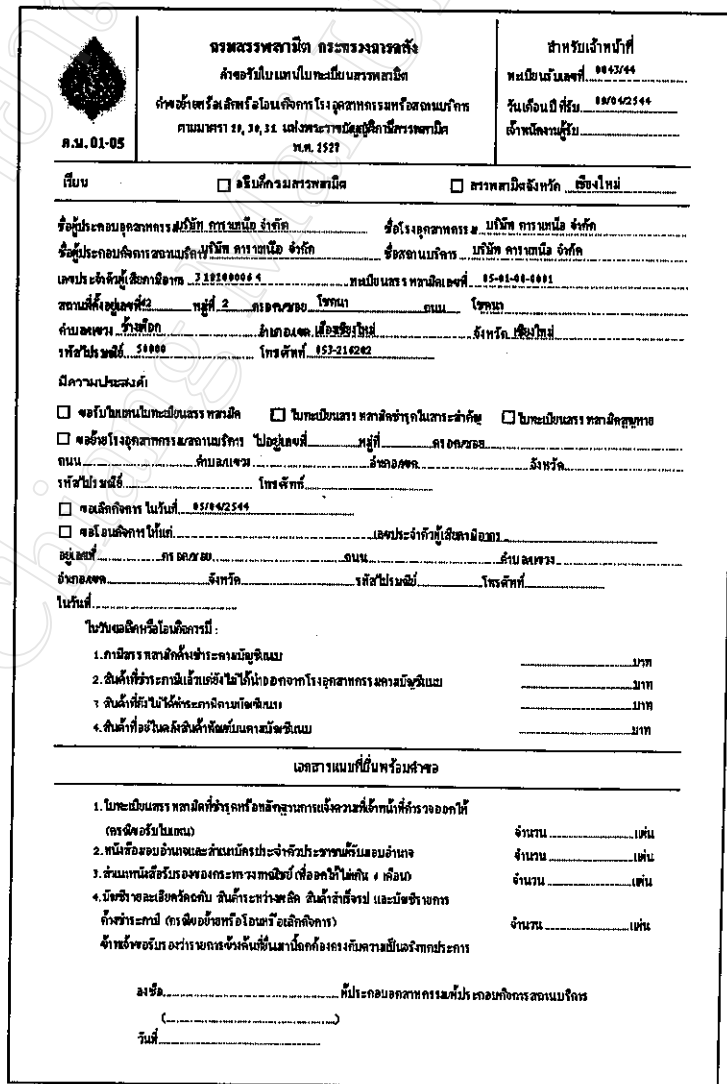 กรมสรรพสามิต กระทรวงการคลัง
คำขอรับใบแทนใบทะเบียนสรรพสามิต
คำขอย้ายหรือเลิกหรือโอนกิจการโรงอุตสาหกรรมหรือสถานบริการ
ตามมาตรา 29, 30, 31 แห่งพระราชบัญญัติภาษีสรรพสามิต
พ.ศ. 2527
ภ.ษ. 01-05
สำหรับเจ้าหน้าที่
ทะเบียนรับเลขที่ 0043/44
วันเดือนปี ที่รับ 09/04/2544
เจ้าพนักงานผู้รับ
เรียน ☐ อธิบดีกรมสรรพสามิต ☐ สรรพสามิตจังหวัด เชียงใหม่
ชื่อผู้ประกอบอุตสาหกรรม บริษัท คาราเหนือ จำกัด ชื่อโรงอุตสาหกรรม บริษัท คาราเหนือ จำกัด
ชื่อผู้ประกอบกิจการสถานบริการ บริษัท คาราเหนือ จำกัด ชื่อสถานบริการ บริษัท คาราเหนือ จำกัด
เลขประจำตัวผู้เสียภาษีอากร 3 1 0 1 0 0 0 0 6 4 ทะเบียนสรรพสามิตเลขที่ 05-01-00-0001
สถานที่ตั้งอยู่เลขที่ 42 หมู่ที่ 2 ตรอก/ซอย โชตนา ถนน โชตนา
ตำบล/แขวง ช้างเผือก อำเภอ/เขต เมืองเชียงใหม่ จังหวัด เชียงใหม่
รหัสไปรษณีย์ 50000 โทรศัพท์ 053-216202
มีความประสงค์
☐ ขอรับใบแทนใบทะเบียนสรรพสามิต ☐ ใบทะเบียนสรรพสามิตชำรุดในสาระสำคัญ ☐ ใบทะเบียนสรรพสามิตสูญหาย
☐ ขอย้ายโรงอุตสาหกรรม/สถานบริการ ไปอยู่เลขที่ หมู่ที่ ตรอก/ซอย
ถนน ตำบล/แขวง อำเภอ/เขต จังหวัด
รหัสไปรษณีย์ โทรศัพท์
☐ ขอเลิกกิจการ ในวันที่ 05/04/2544
☐ ขอโอนกิจการให้แก่ เลขประจำตัวผู้เสียภาษีอากร
อยู่เลขที่ ตรอก/ซอย ถนน ตำบล/แขวง
อำเภอ/เขต จังหวัด รหัสไปรษณีย์ โทรศัพท์
ในวันที่
ในวันขอเลิกหรือโอนกิจการมี :
1. ภาษีสรรพสามิตค้างชำระตามบัญชีแนบ บาท
2. สินค้าที่ชำระภาษีแล้วแต่ยังไม่ได้นำออกจากโรงอุตสาหกรรมตามบัญชีแนบ บาท
3. สินค้าที่ยังไม่ได้ชำระภาษีตามบัญชีแนบ บาท
4. สินค้าที่อยู่ในคลังสินค้าทัณฑ์บนตามบัญชีแนบ บาท
เอกสารแนบที่ยื่นพร้อมคำขอ
1. ใบทะเบียนสรรพสามิตที่ชำรุดหรือหลักฐานการแจ้งความที่เจ้าหน้าที่ตำรวจออกให้
(กรณีขอรับใบแทน) จำนวน แผ่น
2. หนังสือมอบอำนาจและสำเนาบัตรประจำตัวประชาชนผู้รับมอบอำนาจ จำนวน แผ่น
3. สำเนาหนังสือรับรองของกระทรวงพาณิชย์ (ที่ออกให้ไม่เกิน 6 เดือน) จำนวน แผ่น
4. บัญชีรายละเอียดวัตถุดิบ สินค้าระหว่างผลิต สินค้าสำเร็จรูป และบัญชีรายการ
ค้างชำระภาษี (กรณีขอย้ายหรือโอนหรือเลิกกิจการ) จำนวน แผ่น
ข้าพเจ้าขอรับรองว่ารายการข้างต้นที่ยื่นมานี้ถูกต้องตรงกับความเป็นจริงทุกประการ
ลงชื่อ ผู้ประกอบอุตสาหกรรม/ผู้ประกอบกิจการสถานบริการ
( )
วันที่